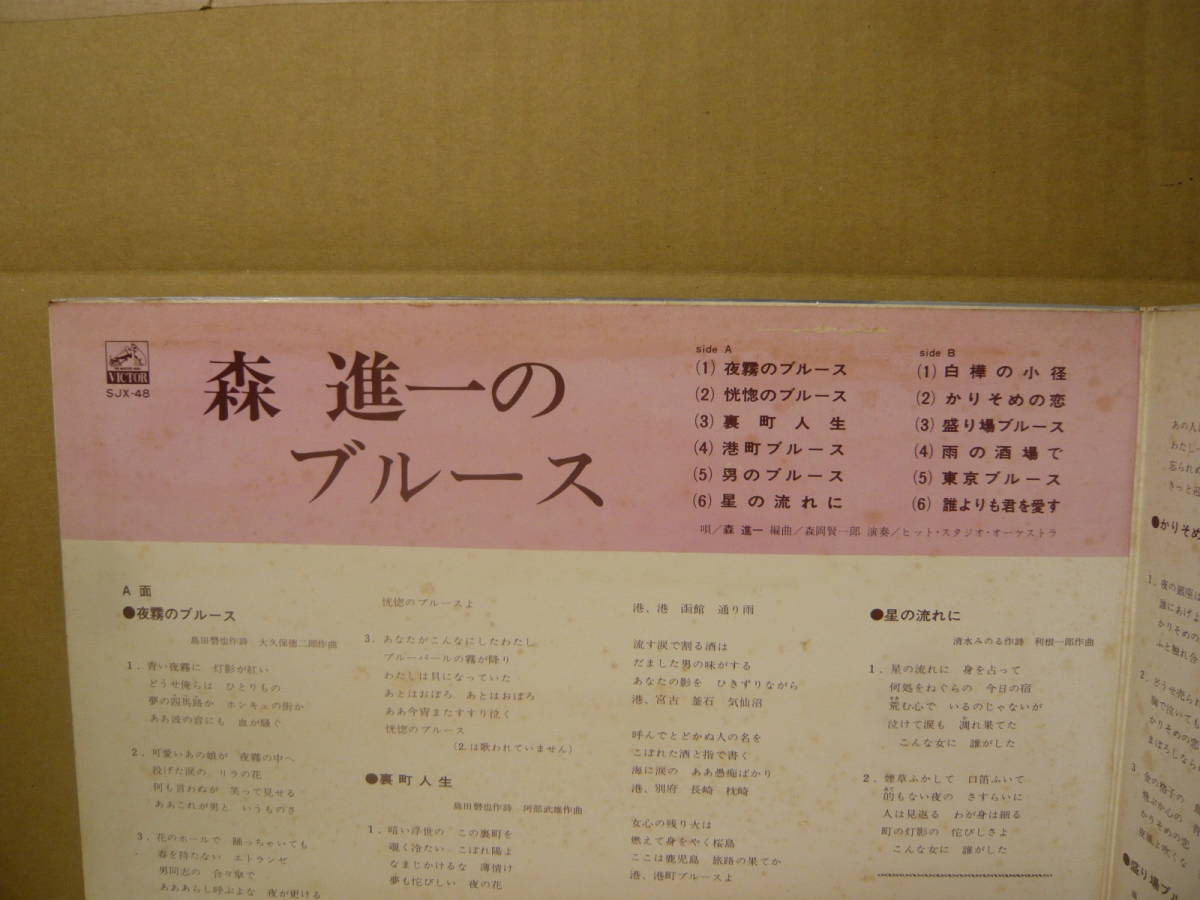 VICTOR
SJX-48
森 進一の
ブルース
side A
(1) 夜霧のブルース
(2) 恍惚のブルース
(3) 裏町人生
(4) 港町ブルース
(5) 男のブルース
(6) 星の流れに
side B
(1) 白樺の小径
(2) かりそめの恋
(3) 盛り場ブルース
(4) 雨の酒場で
(5) 東京ブルース
(6) 誰よりも君を愛す
唄／森 進一 編曲／森岡賢一郎 演奏／ヒット・スタジオ・オーケストラ
A 面
●夜霧のブルース
島田磬也作詩 大久保徳二郎作曲
1. 青い夜霧に 灯影が紅い
どうせ俺らは ひとりもの
夢の四馬路か ホンキュの街か
ああ波の音にも 血が騒ぐ
2. 可愛いあの娘が 夜霧の中へ
投げた涙の リラの花
何も言わぬが 笑って見せる
ああこれが男と いうものさ
3. 花のホールで 踊っちゃいても
春を待たない エトランゼ
男同志の 合々傘で
あああらし呼ぶよな 夜が更ける
恍惚のブルースよ
3. あなたがこんなにしたわたし
ブルーパールの霧が降り
わたしは貝になっていた
あとはおぼろ あとはおぼろ
ああ今宵またすすり泣く
恍惚のブルース
(2.は歌われていません)
●裏町人生
島田磬也作詩 阿部武雄作曲
1. 暗い浮世の この裏町を
覗く冷たい こぼれ陽よ
なまじかけるな 薄情け
夢も侘びしい 夜の花
港、港 函館 通り雨
流す涙で割る酒は
だました男の味がする
あなたの影を ひきずりながら
港、宮古 釜石 気仙沼
呼んでとどかぬ人の名を
こぼれた酒と指で書く
海に涙の ああ愚痴ばかり
港、別府 長崎 枕崎
女心の残り火は
燃えて身をやく桜島
ここは鹿児島 旅路の果てか
港、港町ブルースよ
●星の流れに
清水みのる作詩 利根一郎作曲
1. 星の流れに 身を占って
何処をねぐらの 今日の宿
荒む心で いるのじゃないが
泣けて涙も 涸れ果てた
こんな女に 誰がした
2. 煙草ふかして 口笛ふいて
的もない夜の さすらいに
人は見返る わが身は細る
町の灯影の 侘びしさよ
こんな女に 誰がした
あの人
わたし
忘られぬ
きっと
●かりそめ
1. 夜の銀座は
誰にあげよ
かりそめの
ふと触れ合
2. どうせ売られ
胸で泣いても
かりそめの
まぼろしなら
3. 金の格子の
かりそめの恋
夜風よ吹くな
●盛り場ブル